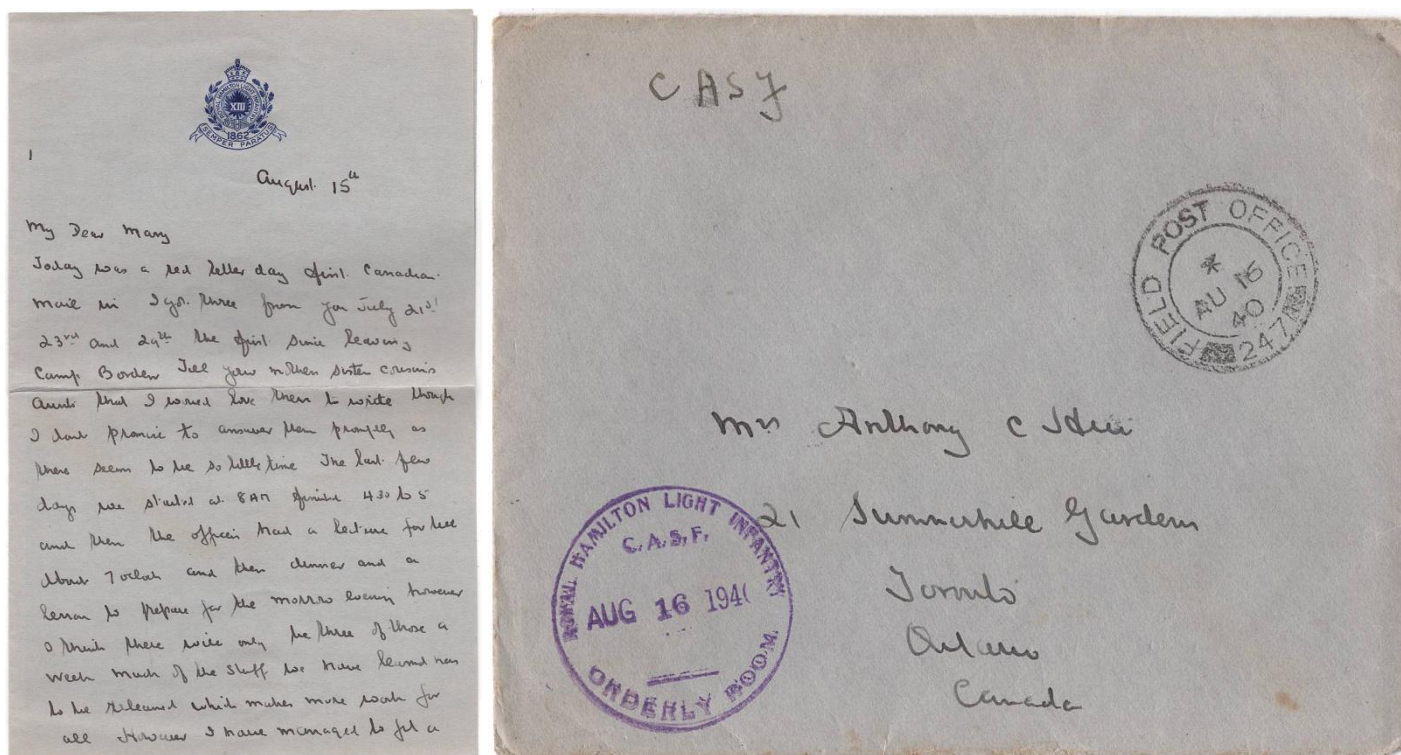 ROYAL HAMILTON LIGHT INFANTRY
XIII
1862
SEMPER PARATUS
1
August 15th
My Dear Mary
Today was a red letter day first Canadian
mail in I got three from you July 21st
23rd and 29th the first since leaving
Camp Borden Tell your mother sister cousins
aunts that I would love them to write though
I dont promise to answer them promptly as
there seem to be so little time The last few
days we started at 8AM finished 430 to 5
and then the officers had a lecture for
about 7 oclock and then dinner and a
lesson to prepare for the morrow however
I think there will only be three of those a
week much of the stuff we have learned has
to be relearned which makes more work for
all However I have managed to get a
CASF
FIELD POST OFFICE
*
AU 16
40
247
Mrs Anthony C
21 Summerhill Gardens
Toronto
Ontario
Canada
ROYAL HAMILTON LIGHT INFANTRY
C.A.S.F.
AUG 16 194
ORDERLY ROOM.